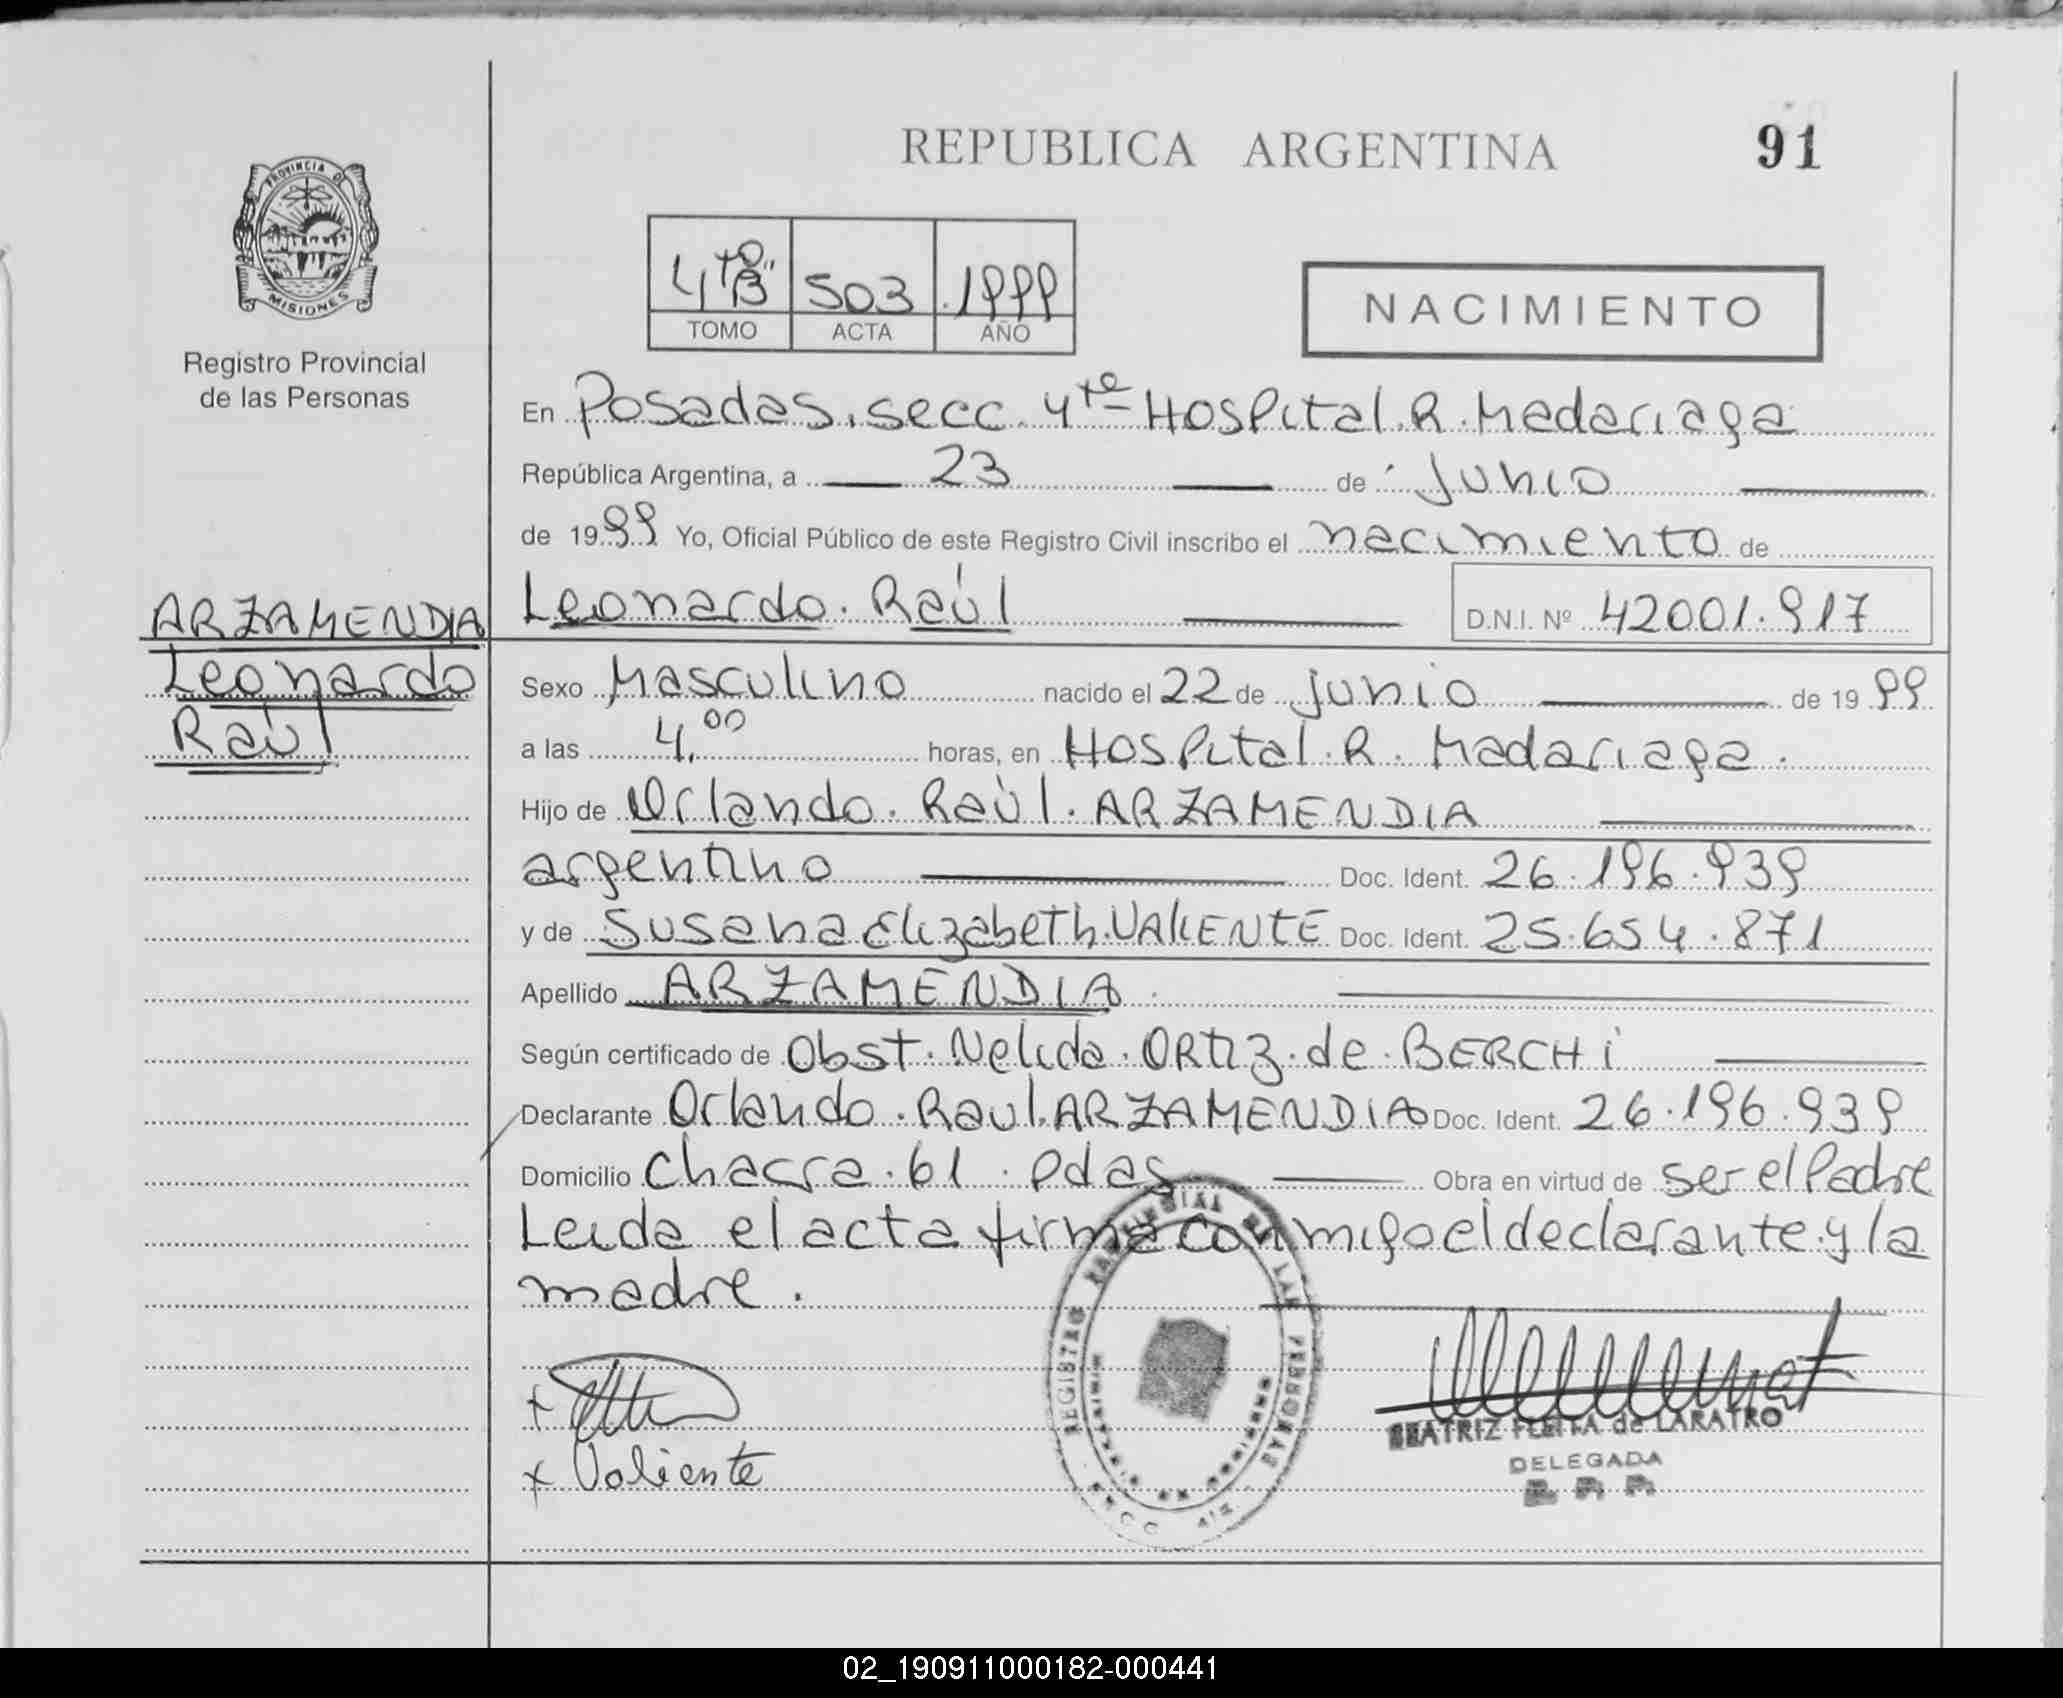 REPUBLICA ARGENTINA
91
PROVINCIA DE
MISIONES
Registro Provincial
de las Personas
4to "B" 503 1999
TOMO ACTA AÑO
NACIMIENTO
En Posadas. secc. 4ta Hospital. R. Madariaga
República Argentina, a 23 de junio
de 1999 Yo, Oficial Público de este Registro Civil inscribo el nacimiento de
Leonardo. Raúl D.N.I. Nº 42001.917
ARZAMENDIA
Leonardo
Raúl
Sexo Masculino nacido el 22 de junio de 1999
a las 4.00 horas, en Hospital. R. Madariaga.
Hijo de Orlando. Raúl. ARZAMENDIA
argentino Doc. Ident. 26.196.939
y de Susana Elizabeth. VALIENTE Doc. Ident. 25.654.871
Apellido ARZAMENDIA
Según certificado de Obst. Nelida. ORTIZ. de. BERCHI
Declarante Orlando. Raul. ARZAMENDIA Doc. Ident. 26.196.939
Domicilio Chacra. 61. Pdas Obra en virtud de ser el Padre
Leida el acta firma conmigo el declarante y la
madre.
REGISTRO PROVINCIAL DE LAS PERSONAS
x Valiente
BEATRIZ de LARATRO
DELEGADA
R. P. P.
02_190911000182-000441